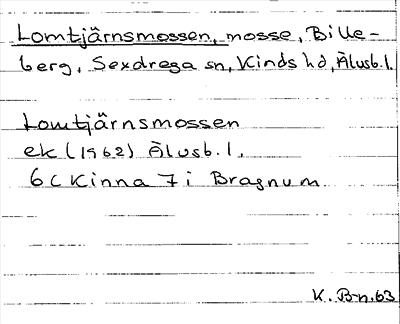 Lomtjärnsmossen, mosse, Bille-
berg, Sexdrega sn, Kinds hd, Älvsb. l.
Lomtjärnsmossen
ek (1962) Älvsb. l,
6 C Kinna 7 i Bragnum
K. Bn. 63